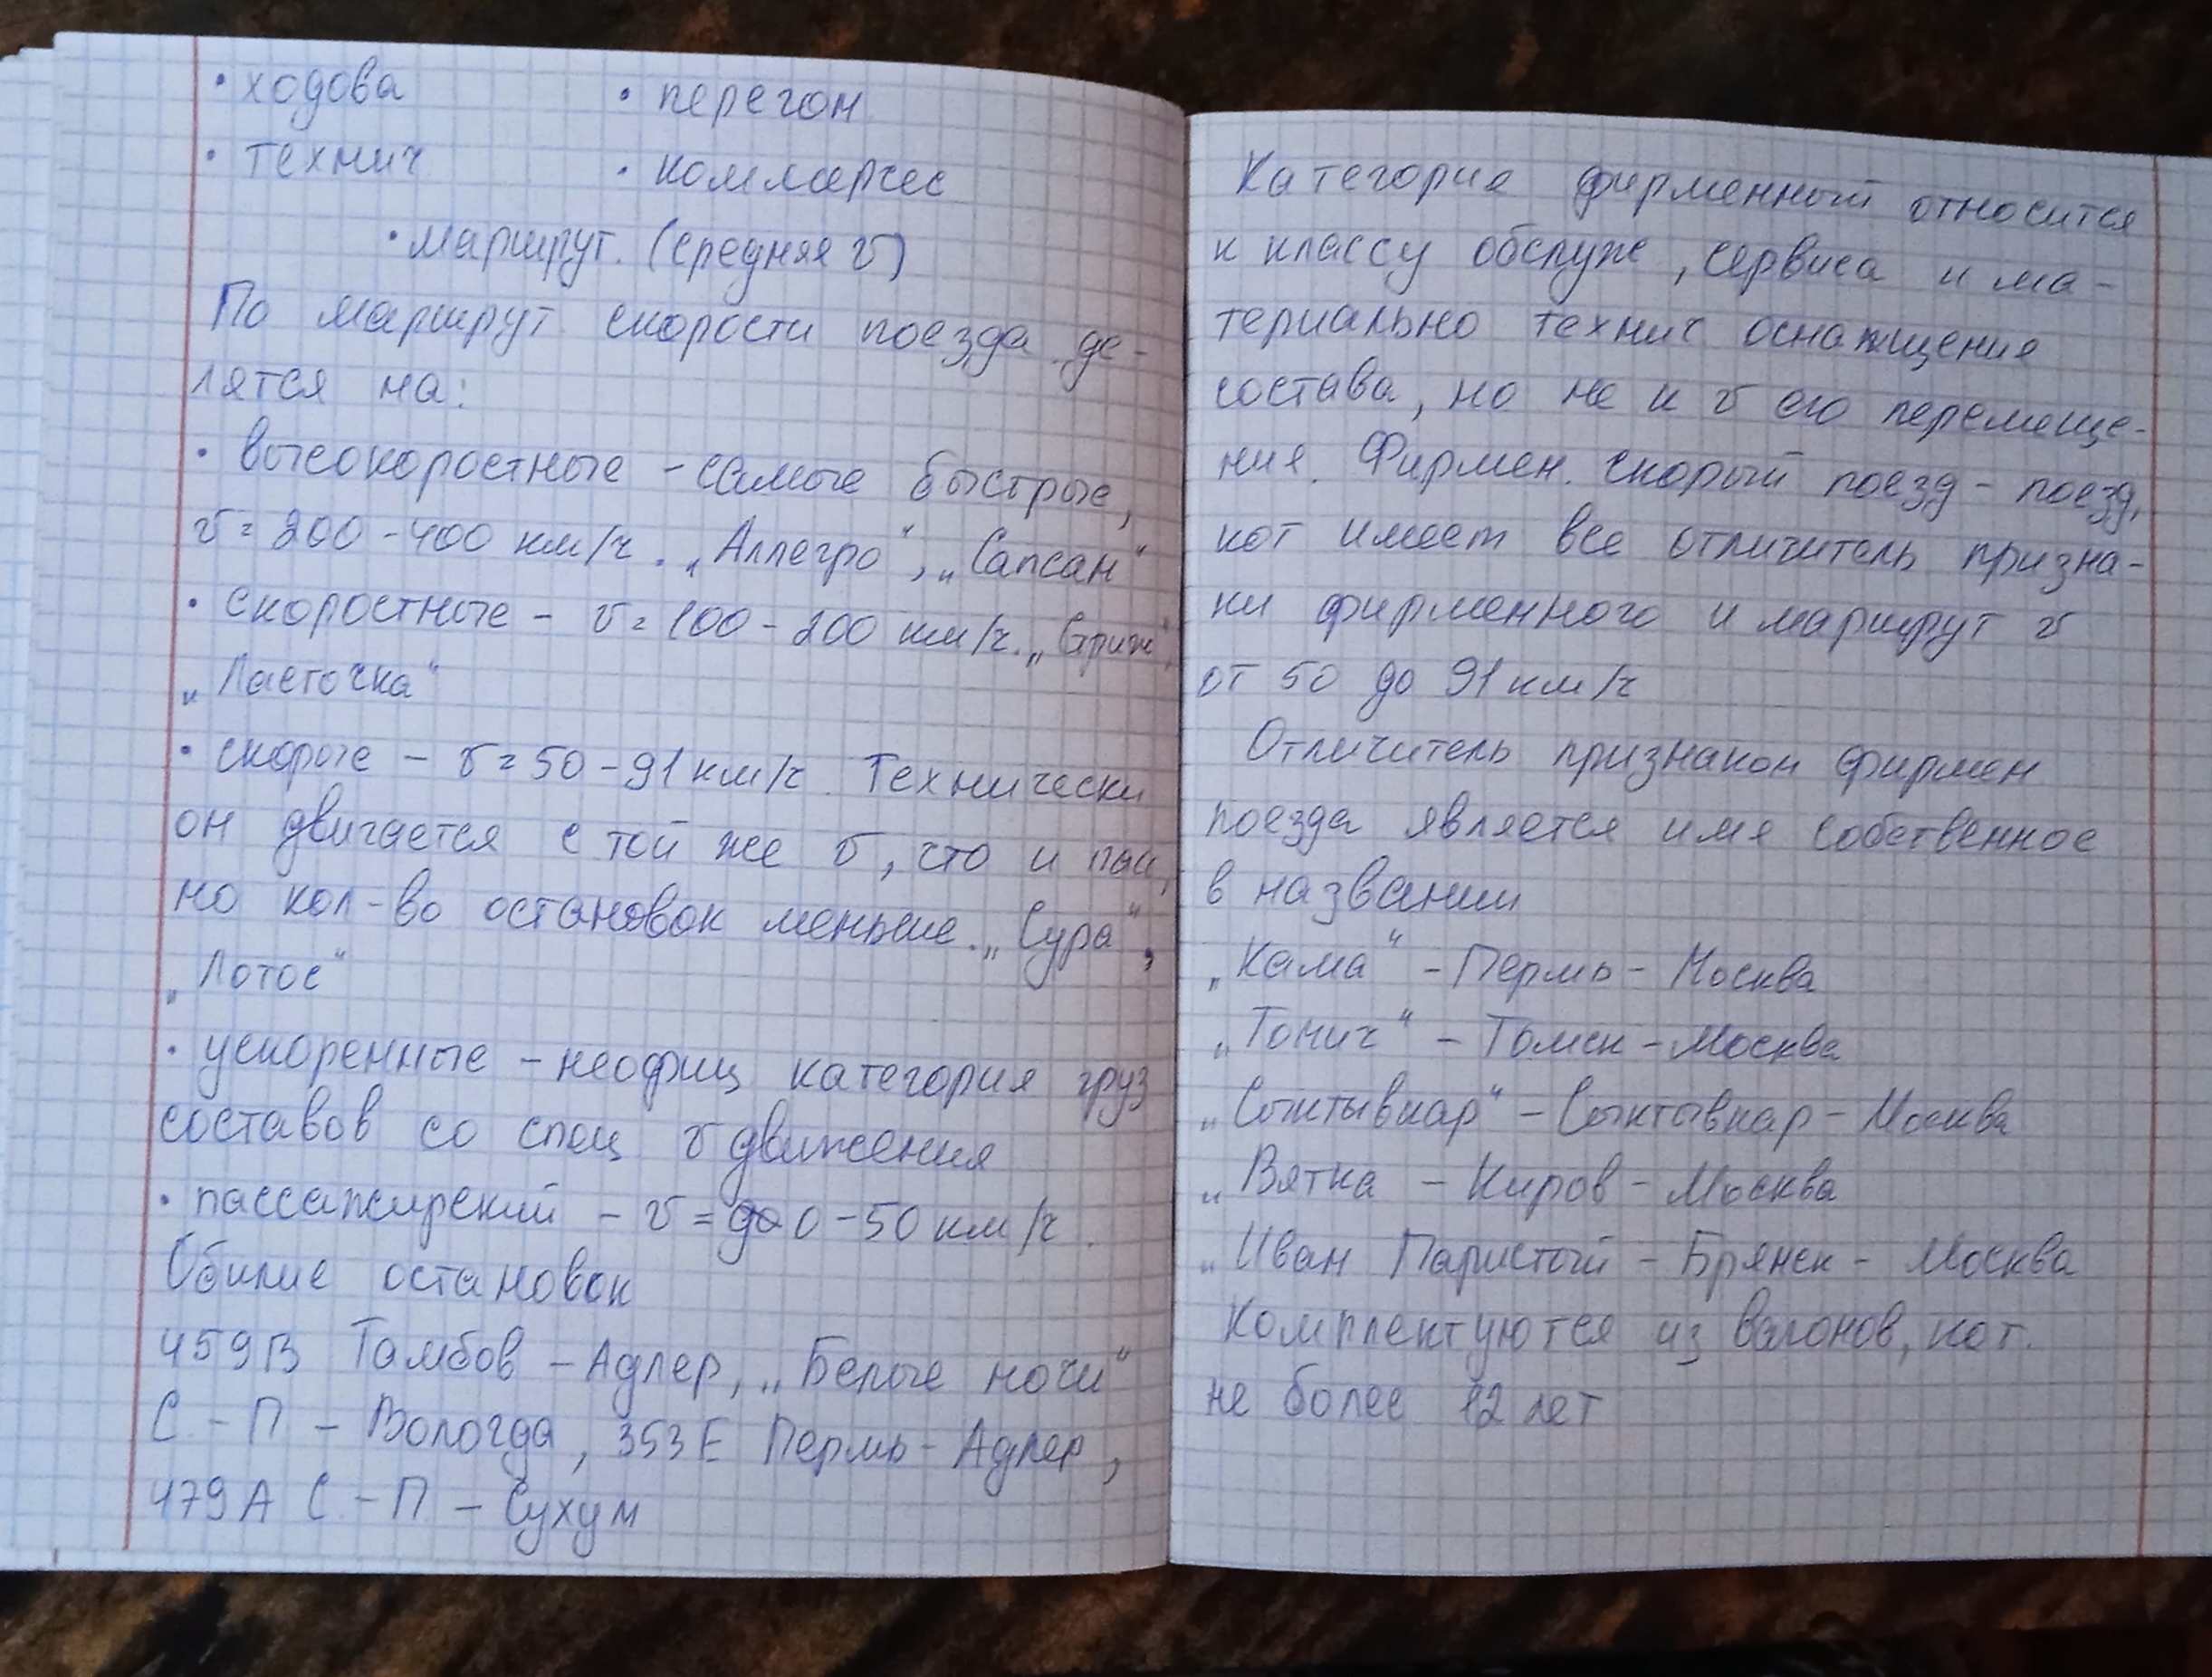 • ходова • перегон
• технич • коммерчес
• маршрут. (средняя v)
По маршрут скорости поезда де-
лятся на:
• высокоростные - самые быстрые,
v = 200 - 400 км/ч. „Аллегро“, „Сапсан“
• скоростные - v = 100 - 200 км/ч. „Стриж“,
„Ласточка“
• скорые - v = 50 - 91 км/ч. Технически
он двигается с той же v, что и пасс,
но кол-во остановок меньше. „Сура“,
„Лотос“
• ускоренные - неофиц категория груз
составов со спец v движения
• пассажирский - v = до 0 - 50 км/ч.
Обилие остановок
459В Тамбов - Адлер, „Белые ночи“
С - П - Вологда, 353Е Пермь - Адлер,
479А С - П - Сухум
Категория фирменный относится
к классу обслуж, сервиса и ма-
териально технич оснащения
состава, но не к v его перемеще-
ния. Фирмен. скорый поезд - поезд,
кот имеет все отличитель призна-
ки фирменного и маршрут v
от 50 до 91 км/ч
Отличитель признаком фирмен
поезда является имя собственное
в названии
„Кама“ - Пермь - Москва
„Томич“ - Томск - Москва
„Сыктывкар“ - Сыктывкар - Москва
„Вятка - Киров - Москва
„Иван Паристый - Брянск - Москва
Комплектуются из вагонов, кот.
не более 12 лет